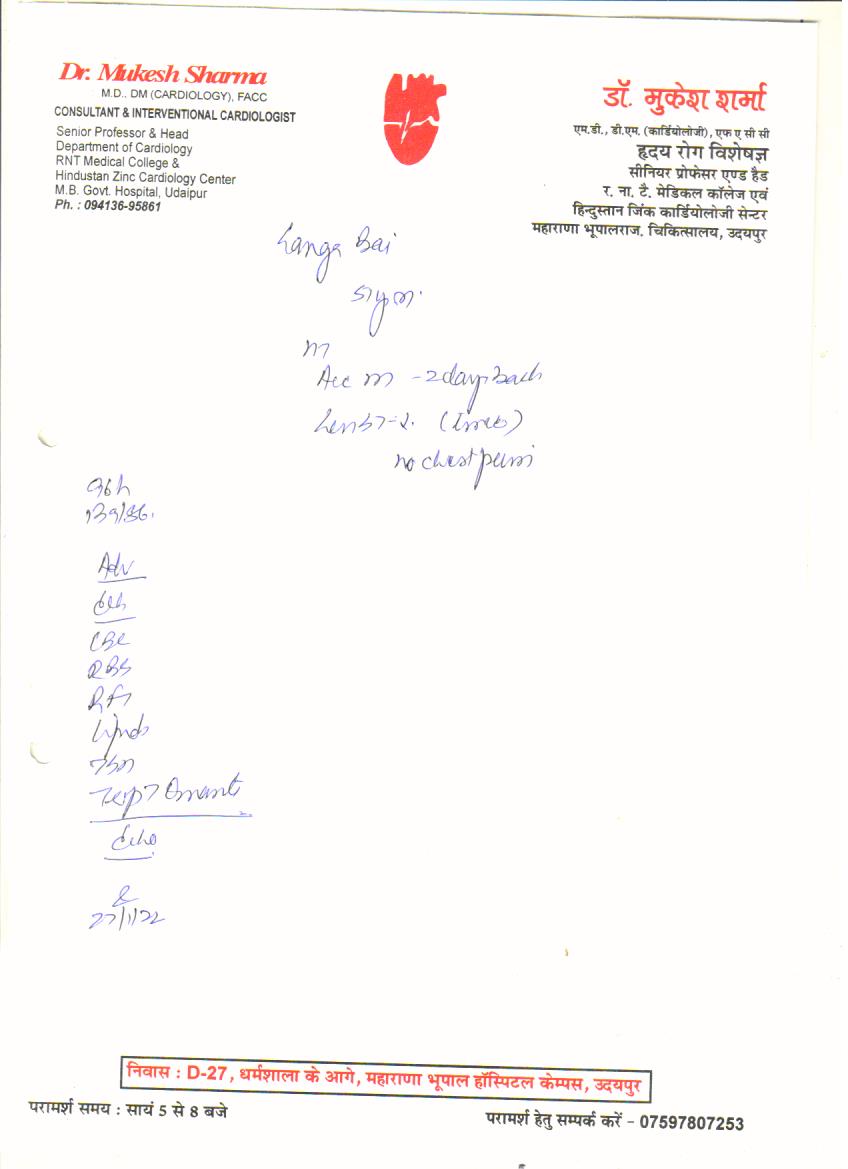 Dr. Mukesh Sharma
M.D.. DM (CARDIOLOGY), FACC
CONSULTANT & INTERVENTIONAL CARDIOLOGIST
Senior Professor & Head
Department of Cardiology
RNT Medical College &
Hindustan Zinc Cardiology Center
M.B. Govt. Hospital, Udaipur
Ph. : 094136-95861
डॉ. मुकेश शर्मा
एम.डी., डी.एम. (कार्डियोलोजी), एफ ए सी सी
हृदय रोग विशेषज्ञ
सीनियर प्रोफेसर एण्ड हैड
र. ना. टै. मेडिकल कॉलेज एवं
हिन्दुस्तान जिंक कार्डियोलोजी सेन्टर
महाराणा भूपालराज. चिकित्सालय, उदयपुर
Bai
- 2 days back
no chest pain
96/
139/86.
Adv
CBC
RBS
RFT
Echo
27/1/22
निवास : D-27, धर्मशाला के आगे, महाराणा भूपाल हॉस्पिटल केम्पस, उदयपुर
परामर्श समय : सायं 5 से 8 बजे
परामर्श हेतु सम्पर्क करें - 07597807253